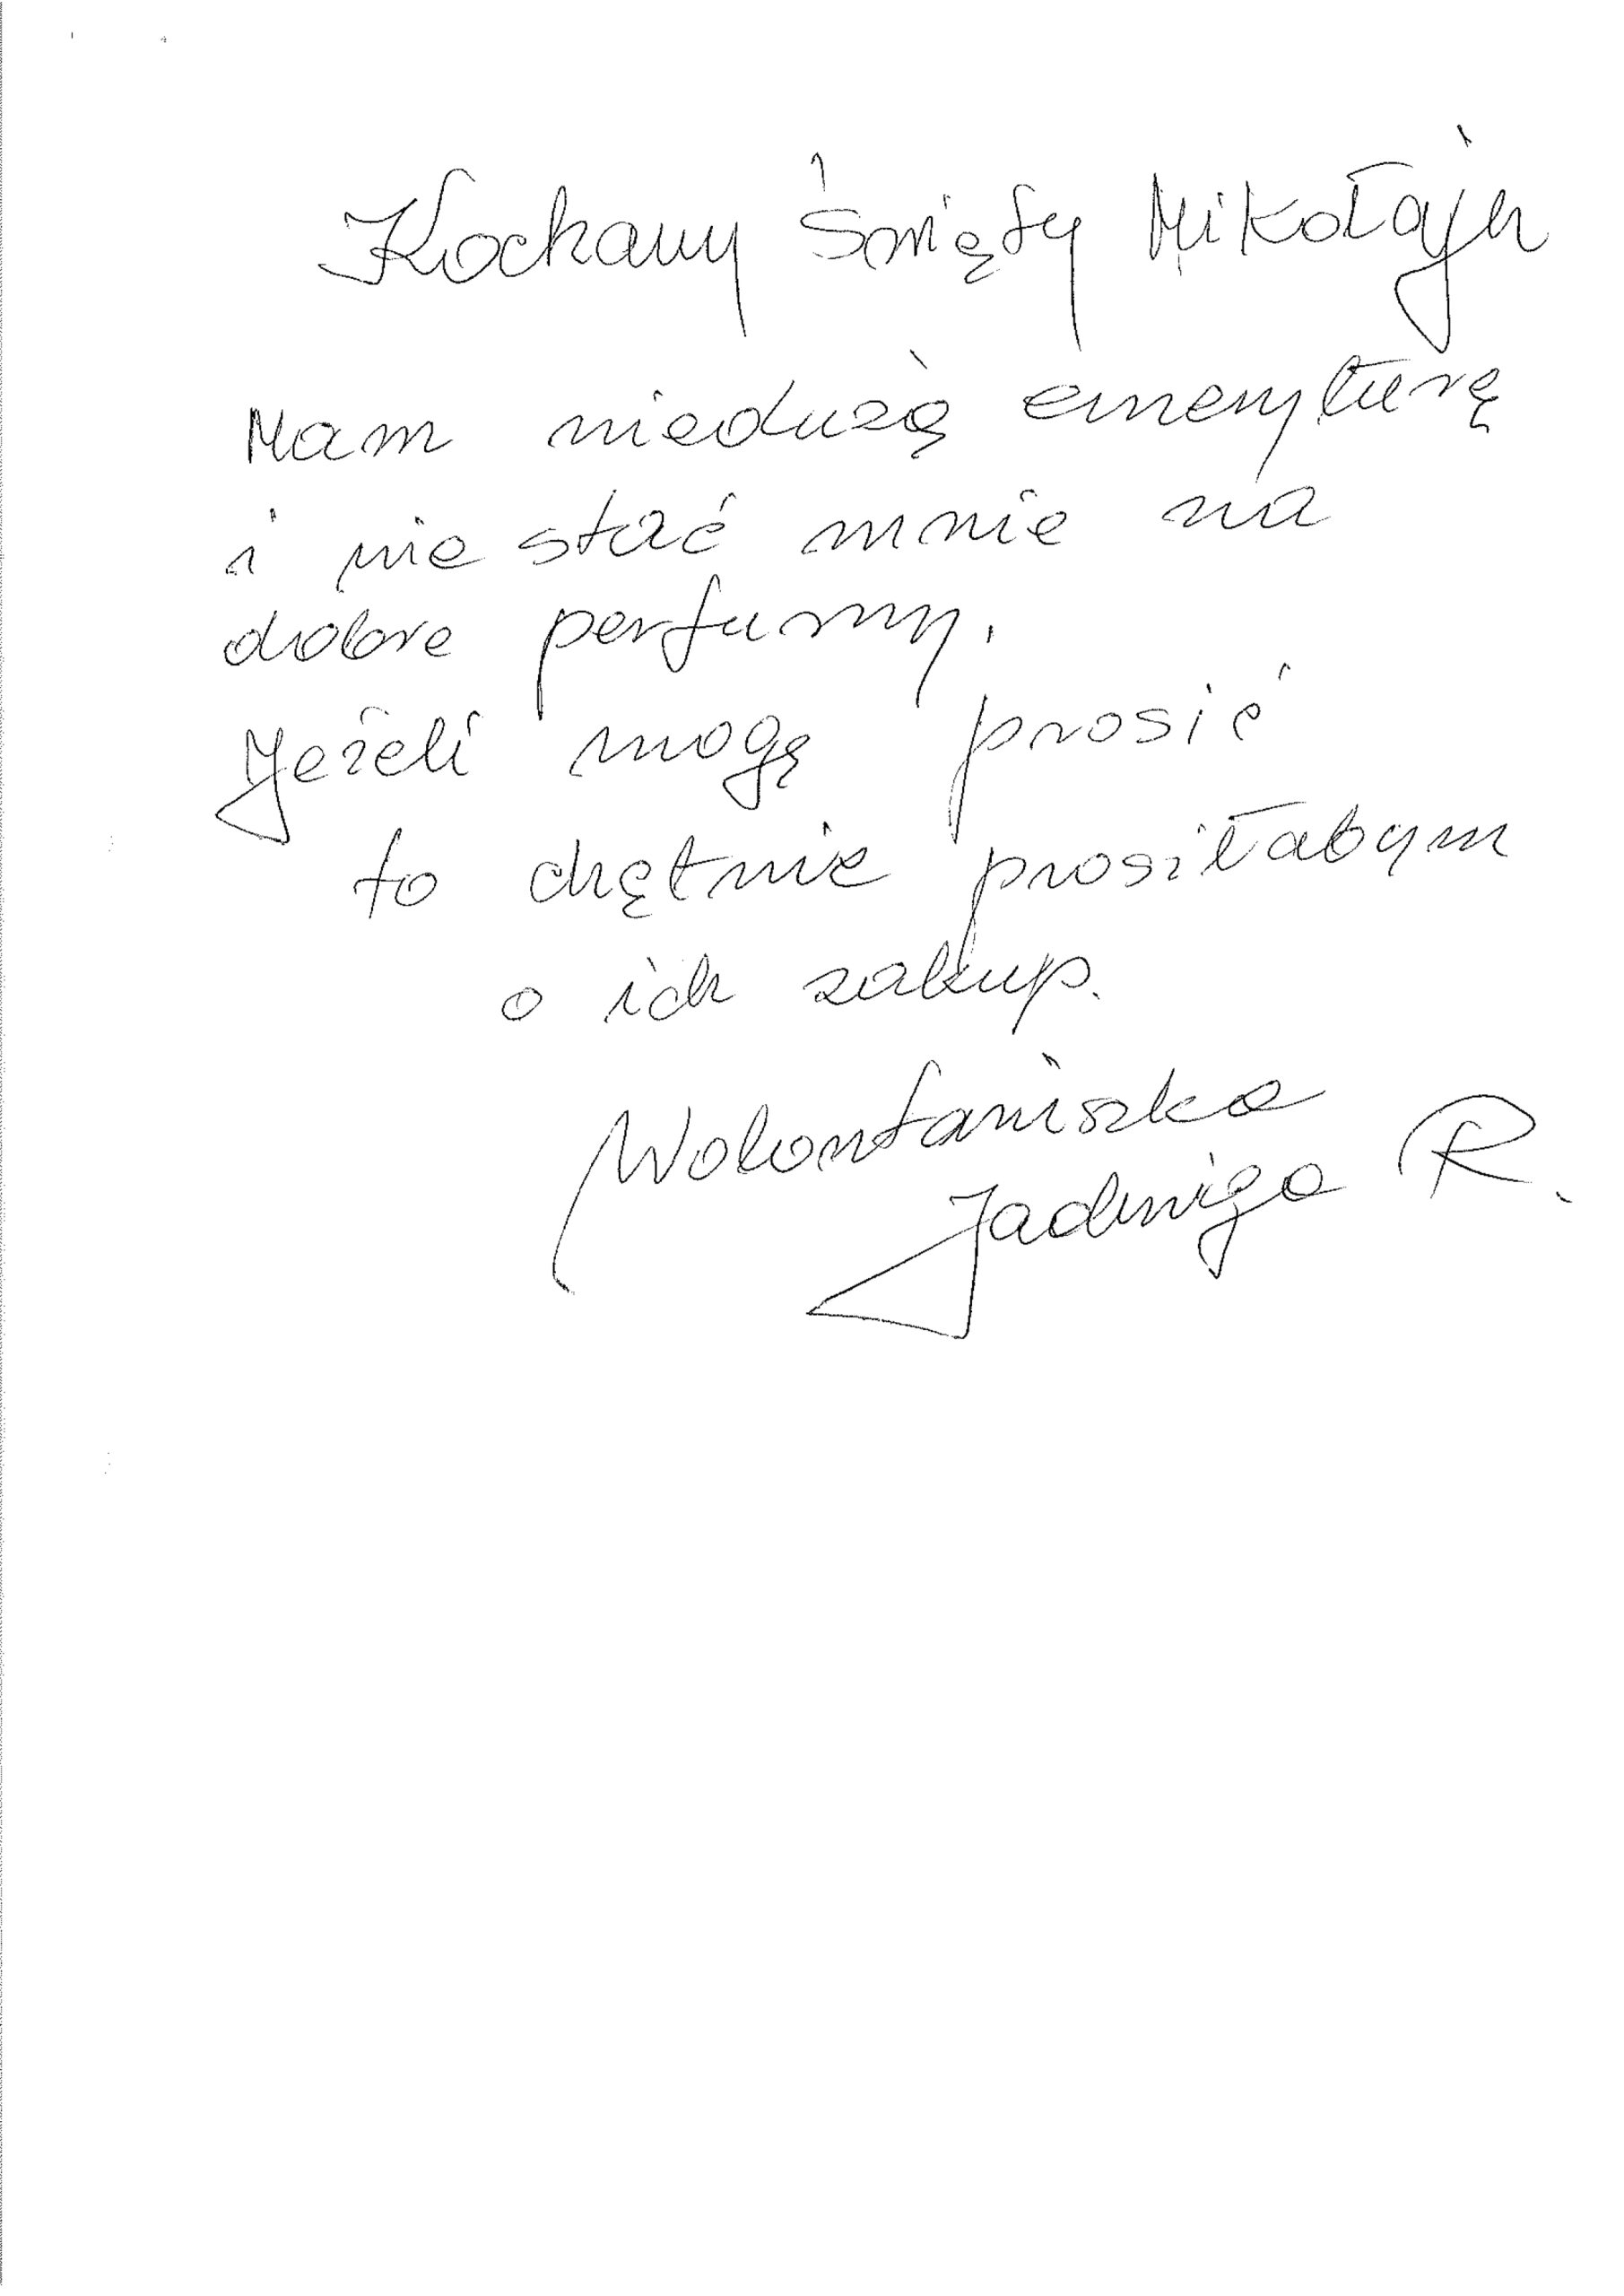 Kochany Święty Mikołaju
Mam niedużą emeryturę
i nie stać mnie na
dobre perfumy.
Jeżeli mogę prosić
to chętnie prosiłabym
o ich zakup.
Wolontariszka
Jadwiga R.